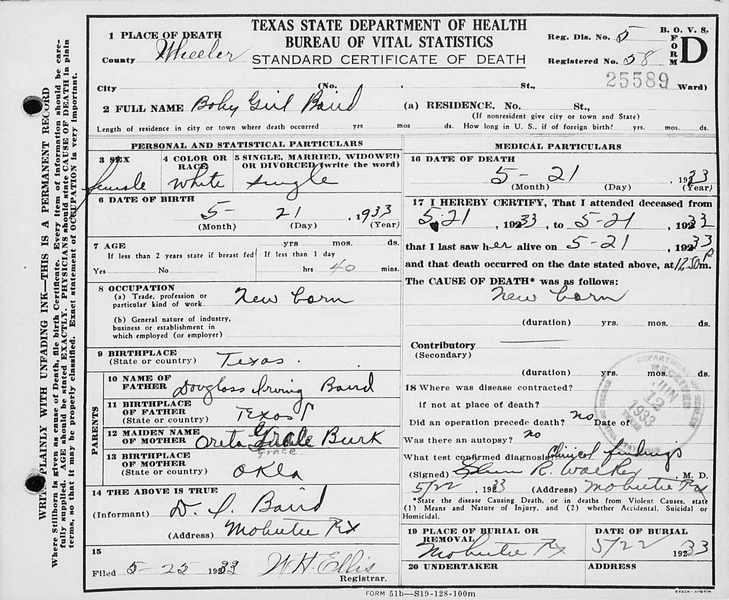 TEXAS STATE DEPARTMENT OF HEALTH
BUREAU OF VITAL STATISTICS
STANDARD CERTIFICATE OF DEATH
B. O. V. S.
FORM D
Reg. Dis. No. 5
Registered No. 58
25589
1 PLACE OF DEATH
County Wheeler
City (No. St., Ward)
2 FULL NAME Baby Girl Baird (a) RESIDENCE. No. St.,
(If nonresident give city or town and State)
Length of residence in city or town where death occurred yrs. mos. ds. How long in U. S., if of foreign birth? yrs. mos. ds.
PERSONAL AND STATISTICAL PARTICULARS
3 SEX
female
4 COLOR OR RACE
White
5 SINGLE, MARRIED, WIDOWED OR DIVORCED (write the word)
single
6 DATE OF BIRTH
5- 21 , 1933
(Month) (Day) (Year)
7 AGE yrs mos ds
If less than 2 years state if breast fed
Yes No
If less than 1 day
hrs 40 mins
8 OCCUPATION
(a) Trade, profession or particular kind of work. New born
(b) General nature of industry, business or establishment in which employed (or employer)
9 BIRTHPLACE
(State or country) Texas.
PARENTS
10 NAME OF FATHER Douglass Irving Baird
11 BIRTHPLACE OF FATHER
(State or country) Texas
12 MAIDEN NAME OF MOTHER Oreta Burk
Grace
13 BIRTHPLACE OF MOTHER
(State or country) Okla
14 THE ABOVE IS TRUE
(Informant) D. I. Baird
(Address) Mobeetie Tx
15
Filed 5-25 1933 W H. Ellis
Registrar.
MEDICAL PARTICULARS
16 DATE OF DEATH
5 - 21 1933
(Month) (Day) (Year)
17 I HEREBY CERTIFY, That I attended deceased from
5-21 , 1933, to 5-21 , 1933
that I last saw her alive on 5-21 , 1933
and that death occurred on the date stated above, at 12:50 P m.
The CAUSE OF DEATH* was as follows:
New born
(duration) yrs. mos. ds.
Contributory
(Secondary)
(duration) yrs. mos. ds.
18 Where was disease contracted?
If not at place of death?
Did an operation precede death? no Date of
Was there an autopsy? no
What test confirmed diagnosis? Clinical findings
(Signed) Glenn R. Walker, M. D.
5/22 , 1933 (Address) Mobeetie Tx
*State the disease Causing Death, or in deaths from Violent Causes, state (1) Means and Nature of Injury, and (2) whether Accidental, Suicidal or Homicidal.
JUN 12 1933
19 PLACE OF BURIAL OR REMOVAL
Mobeetie Tx
DATE OF BURIAL
5/22 1933
20 UNDERTAKER
ADDRESS
FORM 51b—S19-128-100m
WRITE PLAINLY WITH UNFADING INK—THIS IS A PERMANENT RECORD